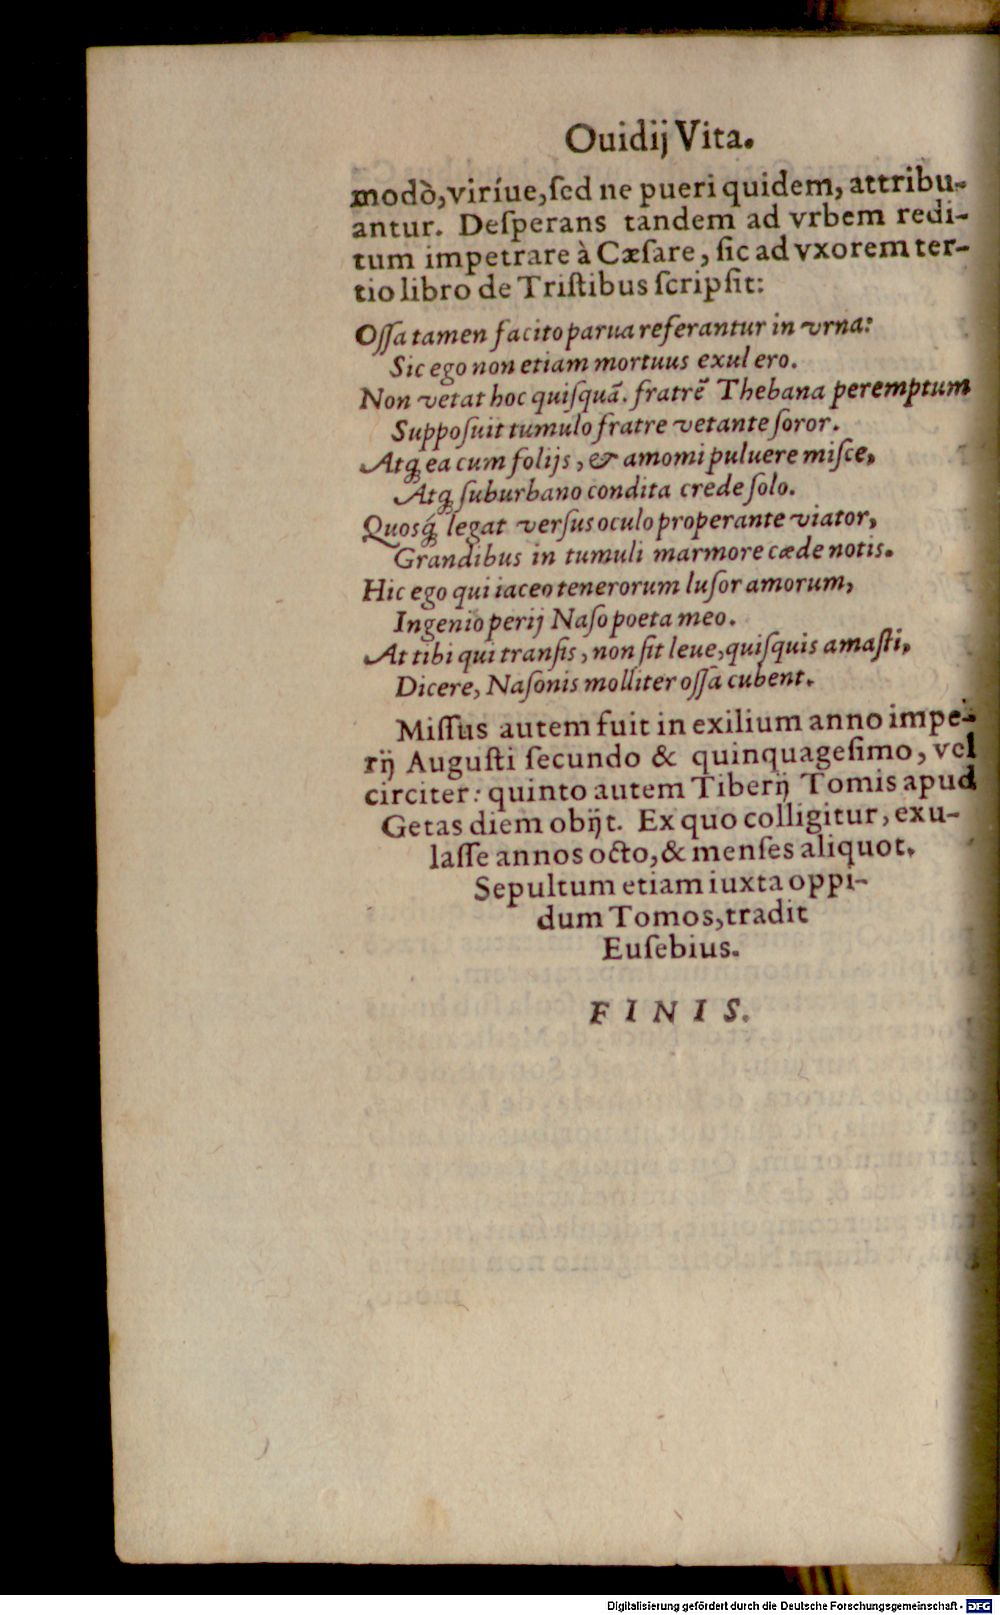 Ouidij Vita.
modò, viríue, ſed ne pueri quidem, attribu-
antur. Deſperans tandem ad vrbem redi-
tum impetrare à Cæſare, ſic ad vxorem ter-
tio libro de Triſtibus ſcripſit:
Oſſa tamen facito parua referantur in vrna:
Sic ego non etiam mortuus exul ero.
Non vetat hoc quiſquã. fratrẽ Thebana peremptum
Suppoſuit tumulo fratre vetante ſoror.
Atq; ea cum folijs, & amomi puluere miſce,
Atq; ſuburbano condita crede ſolo.
Quosq́; legat verſus oculo properante viator,
Grandibus in tumuli marmore cæde notis.
Hic ego qui iaceo tenerorum luſor amorum,
Ingenio perij Naſo poeta meo.
At tibi qui tranſis, non ſit leue, quiſquis amaſti,
Dicere, Naſonis molliter oſſa cubent.
Miſſus autem fuit in exilium anno impe-
rij Auguſti ſecundo & quinquageſimo, vel
circiter: quinto autem Tiberij Tomis apud
Getas diem obijt. Ex quo colligitur, exu-
laſſe annos octo, & menſes aliquot.
Sepultum etiam iuxta oppi-
dum Tomos, tradit
Euſebius.
FINIS.
Digitalisierung gefördert durch die Deutsche Forschungsgemeinschaft - DFG